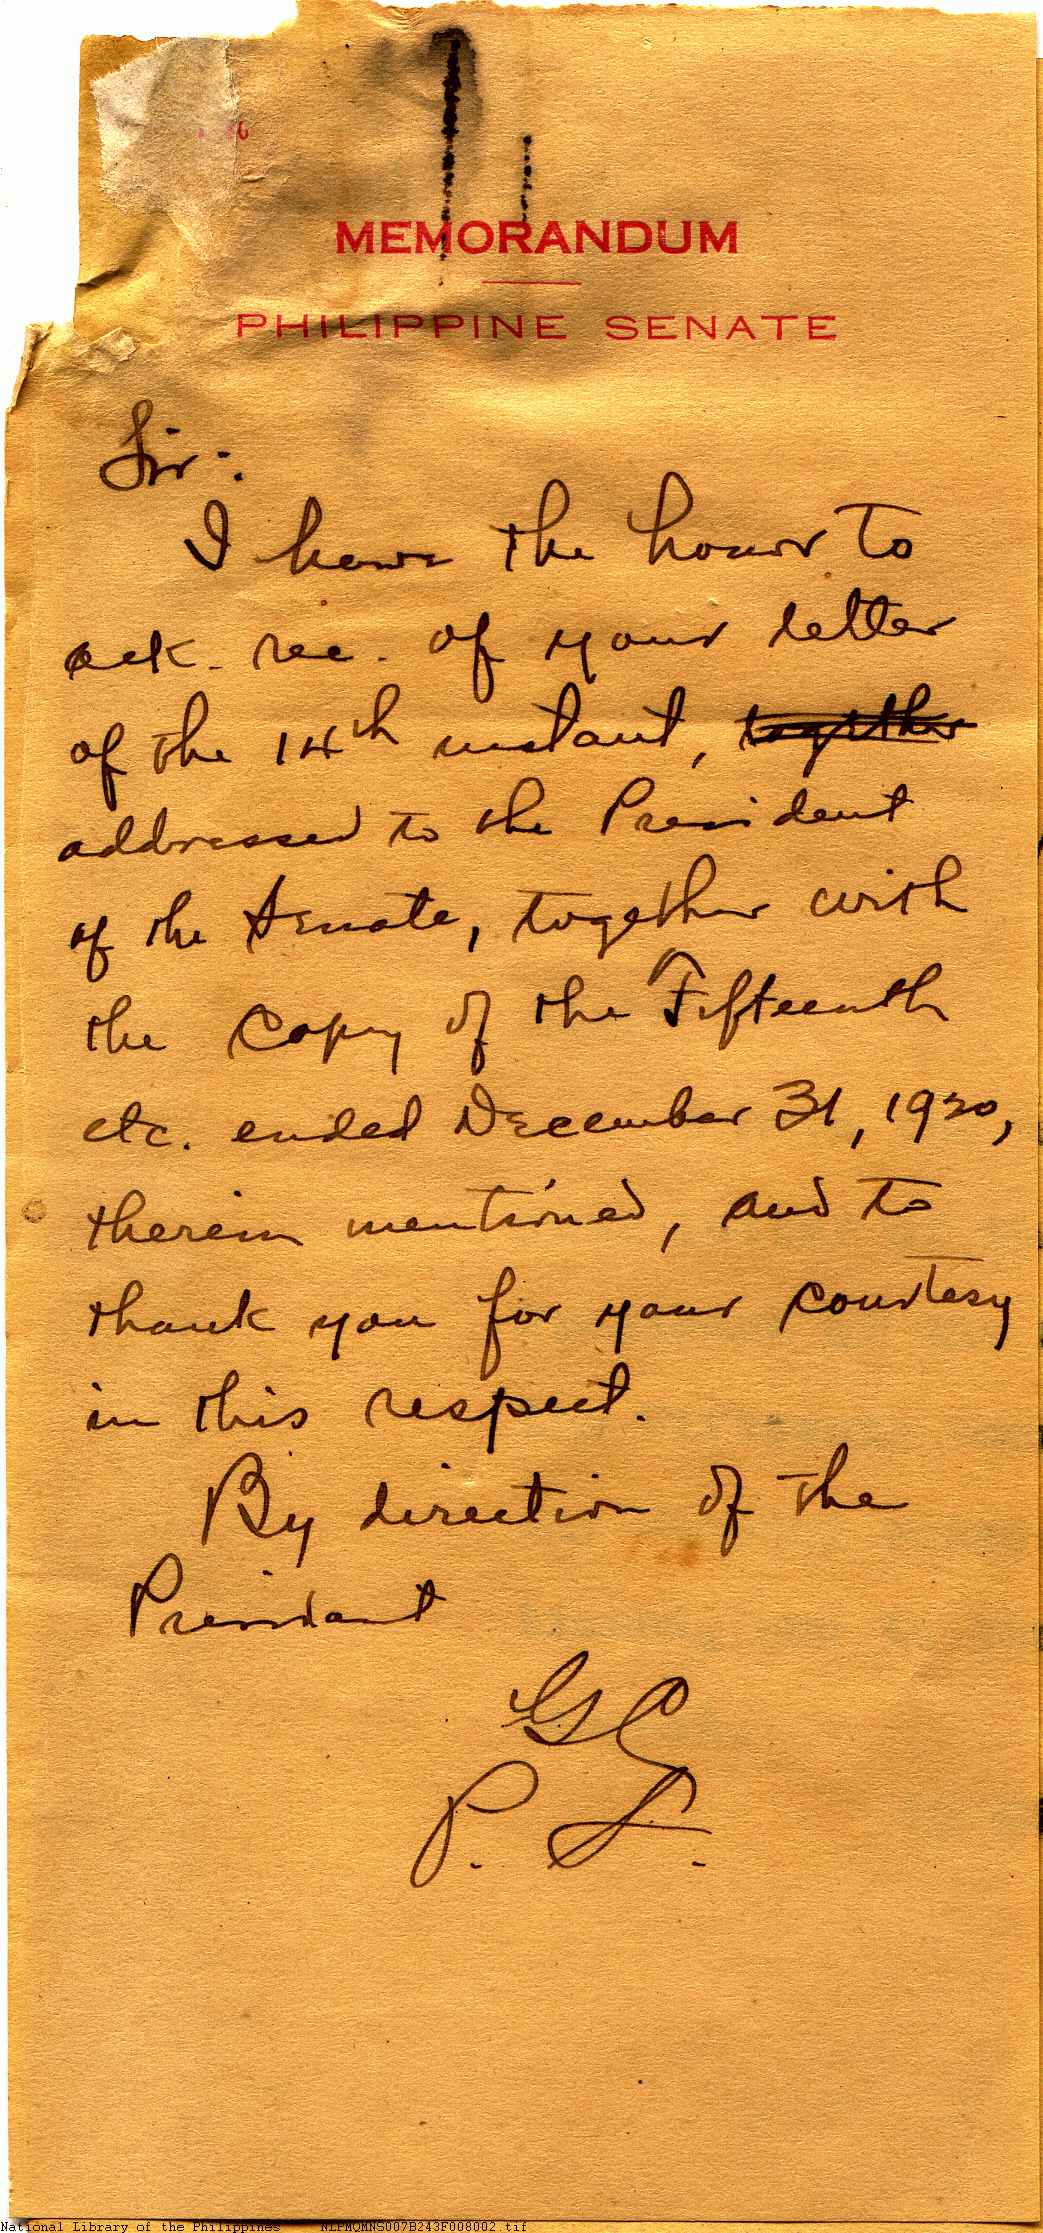 MEMORANDUM
PHILIPPINE SENATE
Sir:
I have the honor to
ack. rec. of your letter
of the 14th instant, together
addressed to the President
of the Senate, together with
the copy of the Fifteenth
etc. ended December 31, 1920,
therein mentioned, and to
thank you for your courtesy
in this respect.
By direction of the
President
P. S.
National Library of the Philippines NLPMQMNS007B243F008002.tif